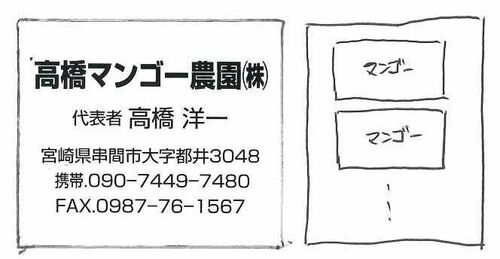 高橋マンゴー農園㈱
代表者 高橋 洋一
宮崎県串間市大字都井3048
携帯.090-7449-7480
FAX.0987-76-1567
マンゴー
マンゴー